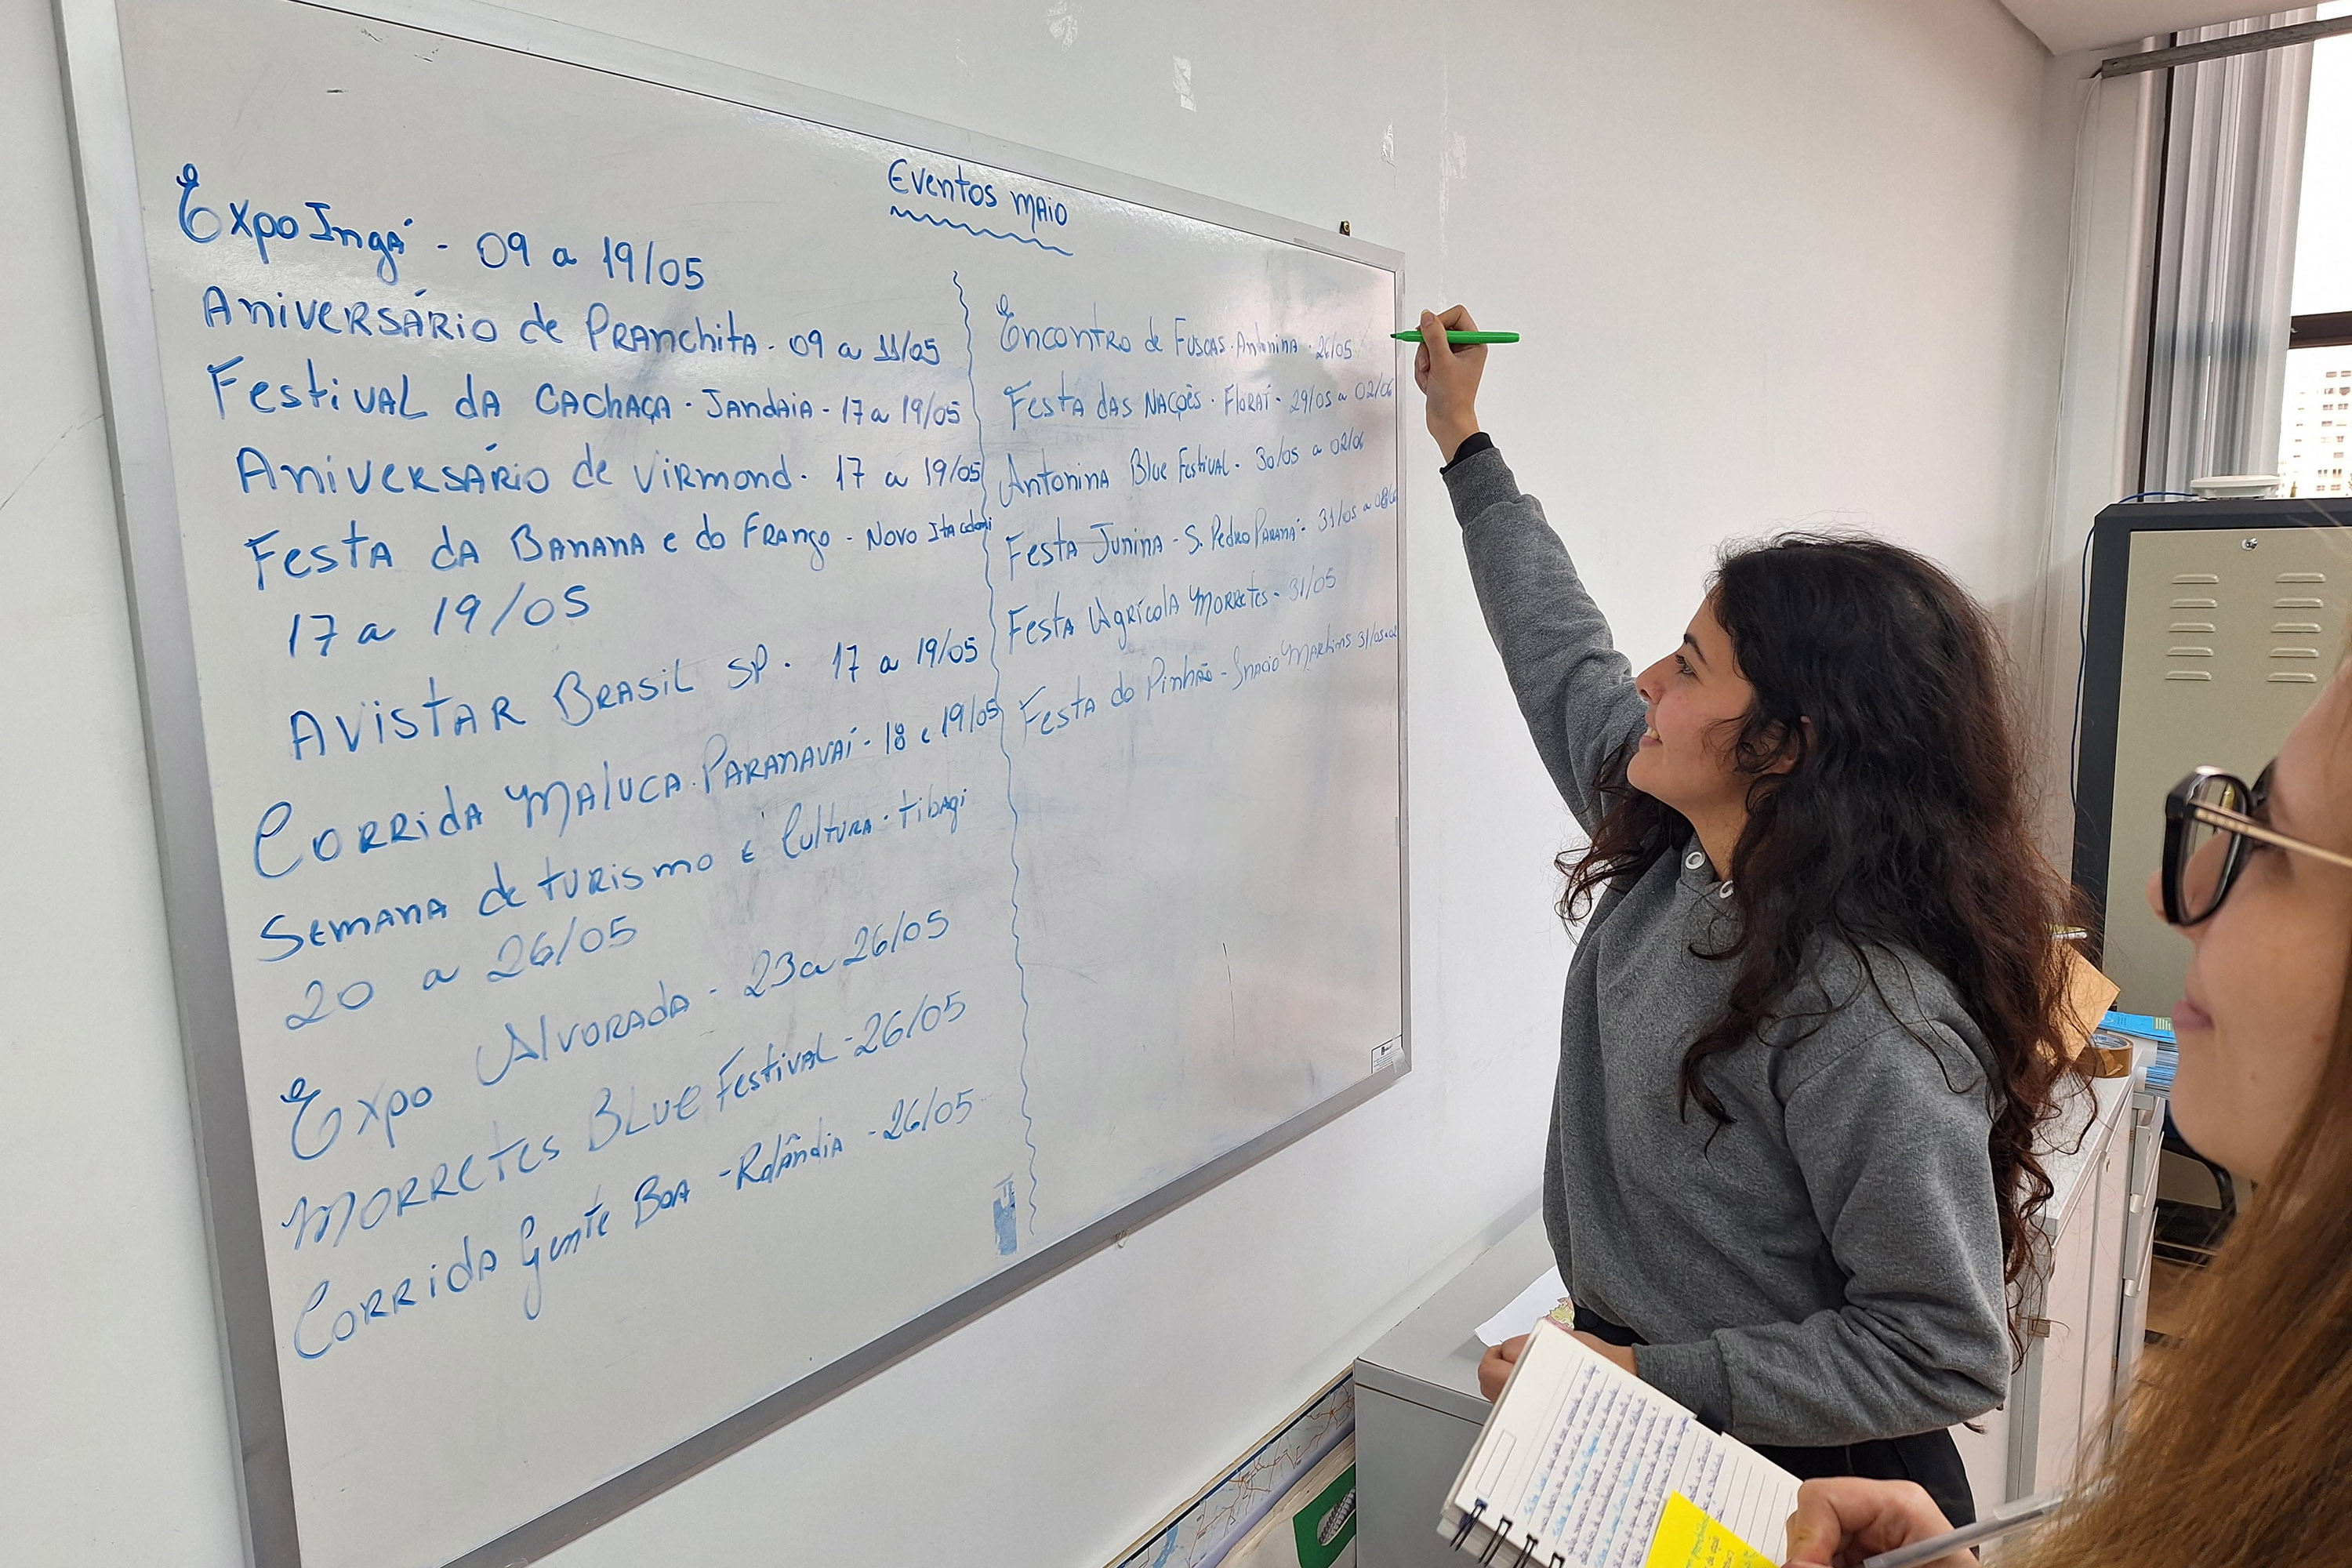 Eventos maio
ExpoIngá - 09 a 19/05
Aniversário de Pranchita - 09 a 11/05
Festival da Cachaça - Jandaia - 17 a 19/05
Aniversário de Virmond - 17 a 19/05
Festa da Banana e do Frango - Novo
17 a 19/05
Avistar Brasil SP - 17 a 19/05
Corrida Maluca Paranavaí - 18 e 19/05
Semana de turismo e Cultura - tibagi
20 a 26/05
Expo Alvorada - 23 a 26/05
Morretes Blue Festival - 26/05
Corrida Gente Boa - Rolândia - 26/05
Encontro de Fuscas - Antonina - 26/05
Festa das Nações - Floraí - 29/05 a 02/06
Antonina Blue Festival - 30/05 a 02/06
Festa Junina - S. Pedro Paraná - 31/05 a
Festa Agrícola Morretes - 31/05
Festa do Pinhão - Inacio Martins 31/05